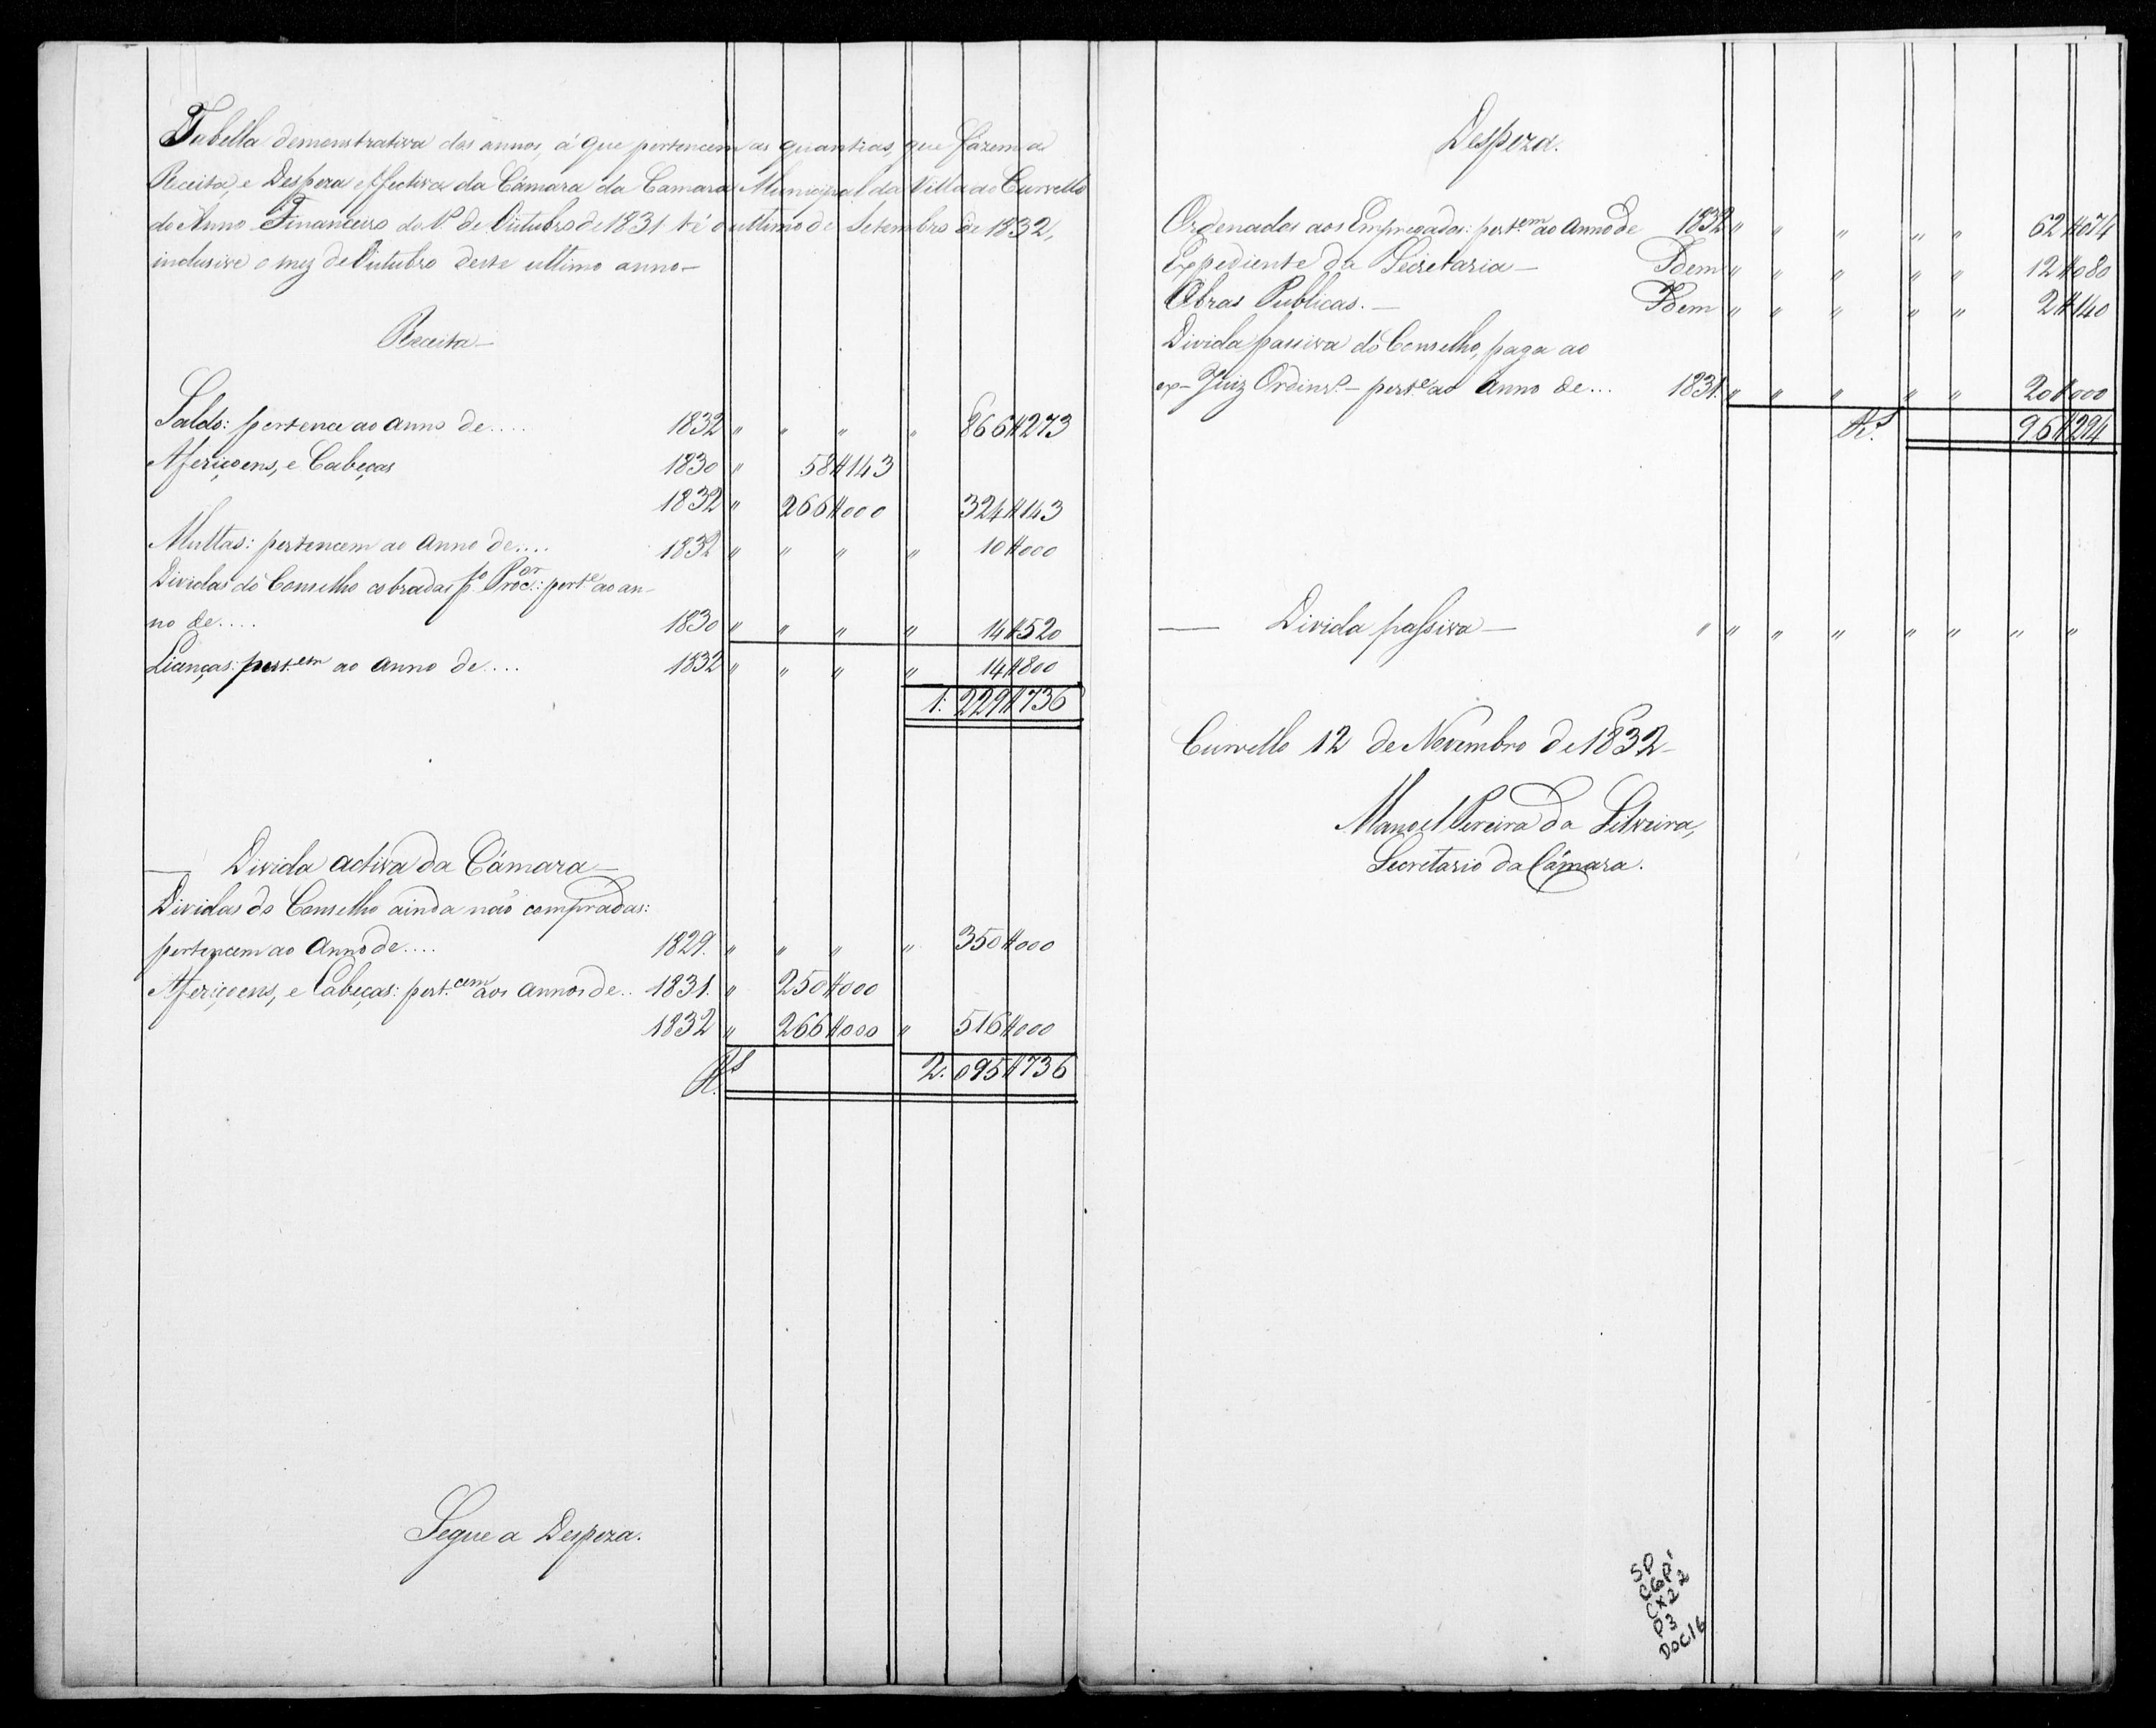 Tabella demonstrativa dos annos, á que pertencem as quantias, que fazem a
Receita, e Despeza effectiva da Câmara da Camara Municipal da Villa do Curvello
do Anno Financeiro do 1º de Outubro de 1831 té o ultimo de Setembro de 1832,
inclusive o mez de Outubro deste ultimo anno-
Receita-
Saldo: pertence ao anno de.... 1832 " " " " 866#273
Afericoens, e Cabeças 1830 " 58#143
1832 " 266#000 324#143
Multas: pertencem ao Anno de.... 1832 " " " " 10#000
Dividas do Conselho cobradas pº Procor: perte ao an-
no de.... 1830 " " " " 14#520
Licenças: pert.em ao anno de.... 1832 " " " " 14#800
1:229#736
— Divida activa da Câmara —
Dividas do Conselho ainda não compradas:
pertencem ao Anno de.... 1829. " " " " 350#000
Afericoens, e Cabeças: pert.cem aos annos de.. 1831. " 250#000
1832 " 266#000 " 516#000
Rs 2:095#736
Segue a Despeza.
Despeza.
Ordenados aos Empregados: pert.em ao anno de 1832 " " " " " 62#074
Expediente da Secretaria — Idem " " " " " 12#080
Obras Publicas. — Idem " " " " " 2#140
Divida passiva do Conselho, paga ao
ex-Juiz Ordinrº - perte ao anno de... 1831. " " " " " 20#000
Rs. 96#294
— Divida passiva — " " " " " " " "
Curvello 12 de Novembro de 1832-
Manoel Pereira da Silveira,
Secretario da Câmara.
SP
CGP1
CX22
P3
DOC16